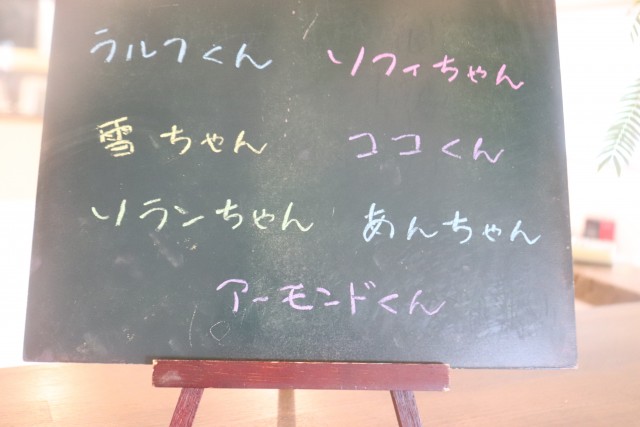 ラルフくん ソフィちゃん
雪ちゃん ココくん
ソランちゃん あんちゃん
アーモンドくん